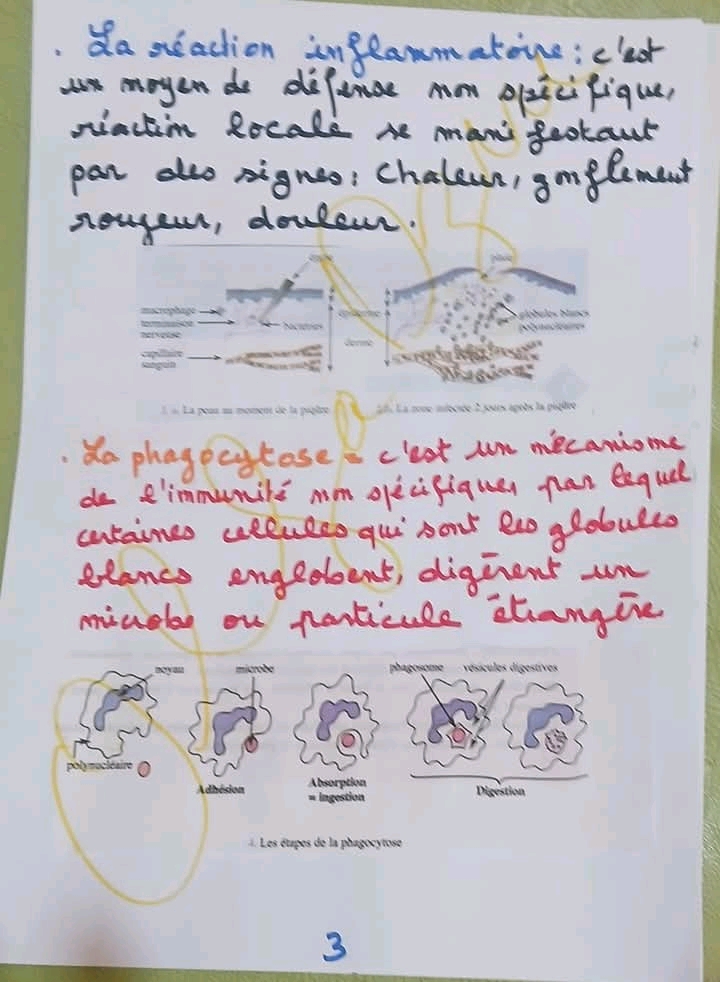 . La réaction inflammatoire : c'est
un moyen de défense non spécifique,
réaction locale se manifestant
par des signes : chaleur, gonflement
rougeur, douleur.
macrophage
terminaison
nerveuse
bactéries
capillaire
sanguin
épiderme
derme
globules blancs
polynucléaires
La peau au moment de la piqûre
La zone infectée 2 jours après la piqûre
. La phagocytose = c'est un mécanisme
de l'immunité non spécifique, par lequel
certaines cellules qui sont les globules
blancs englobent, digèrent un
microbe ou particule étrangère
noyau
microbe
phagosome
vésicules digestives
polynucléaire
Adhésion
Absorption
= ingestion
Digestion
4. Les étapes de la phagocytose
3